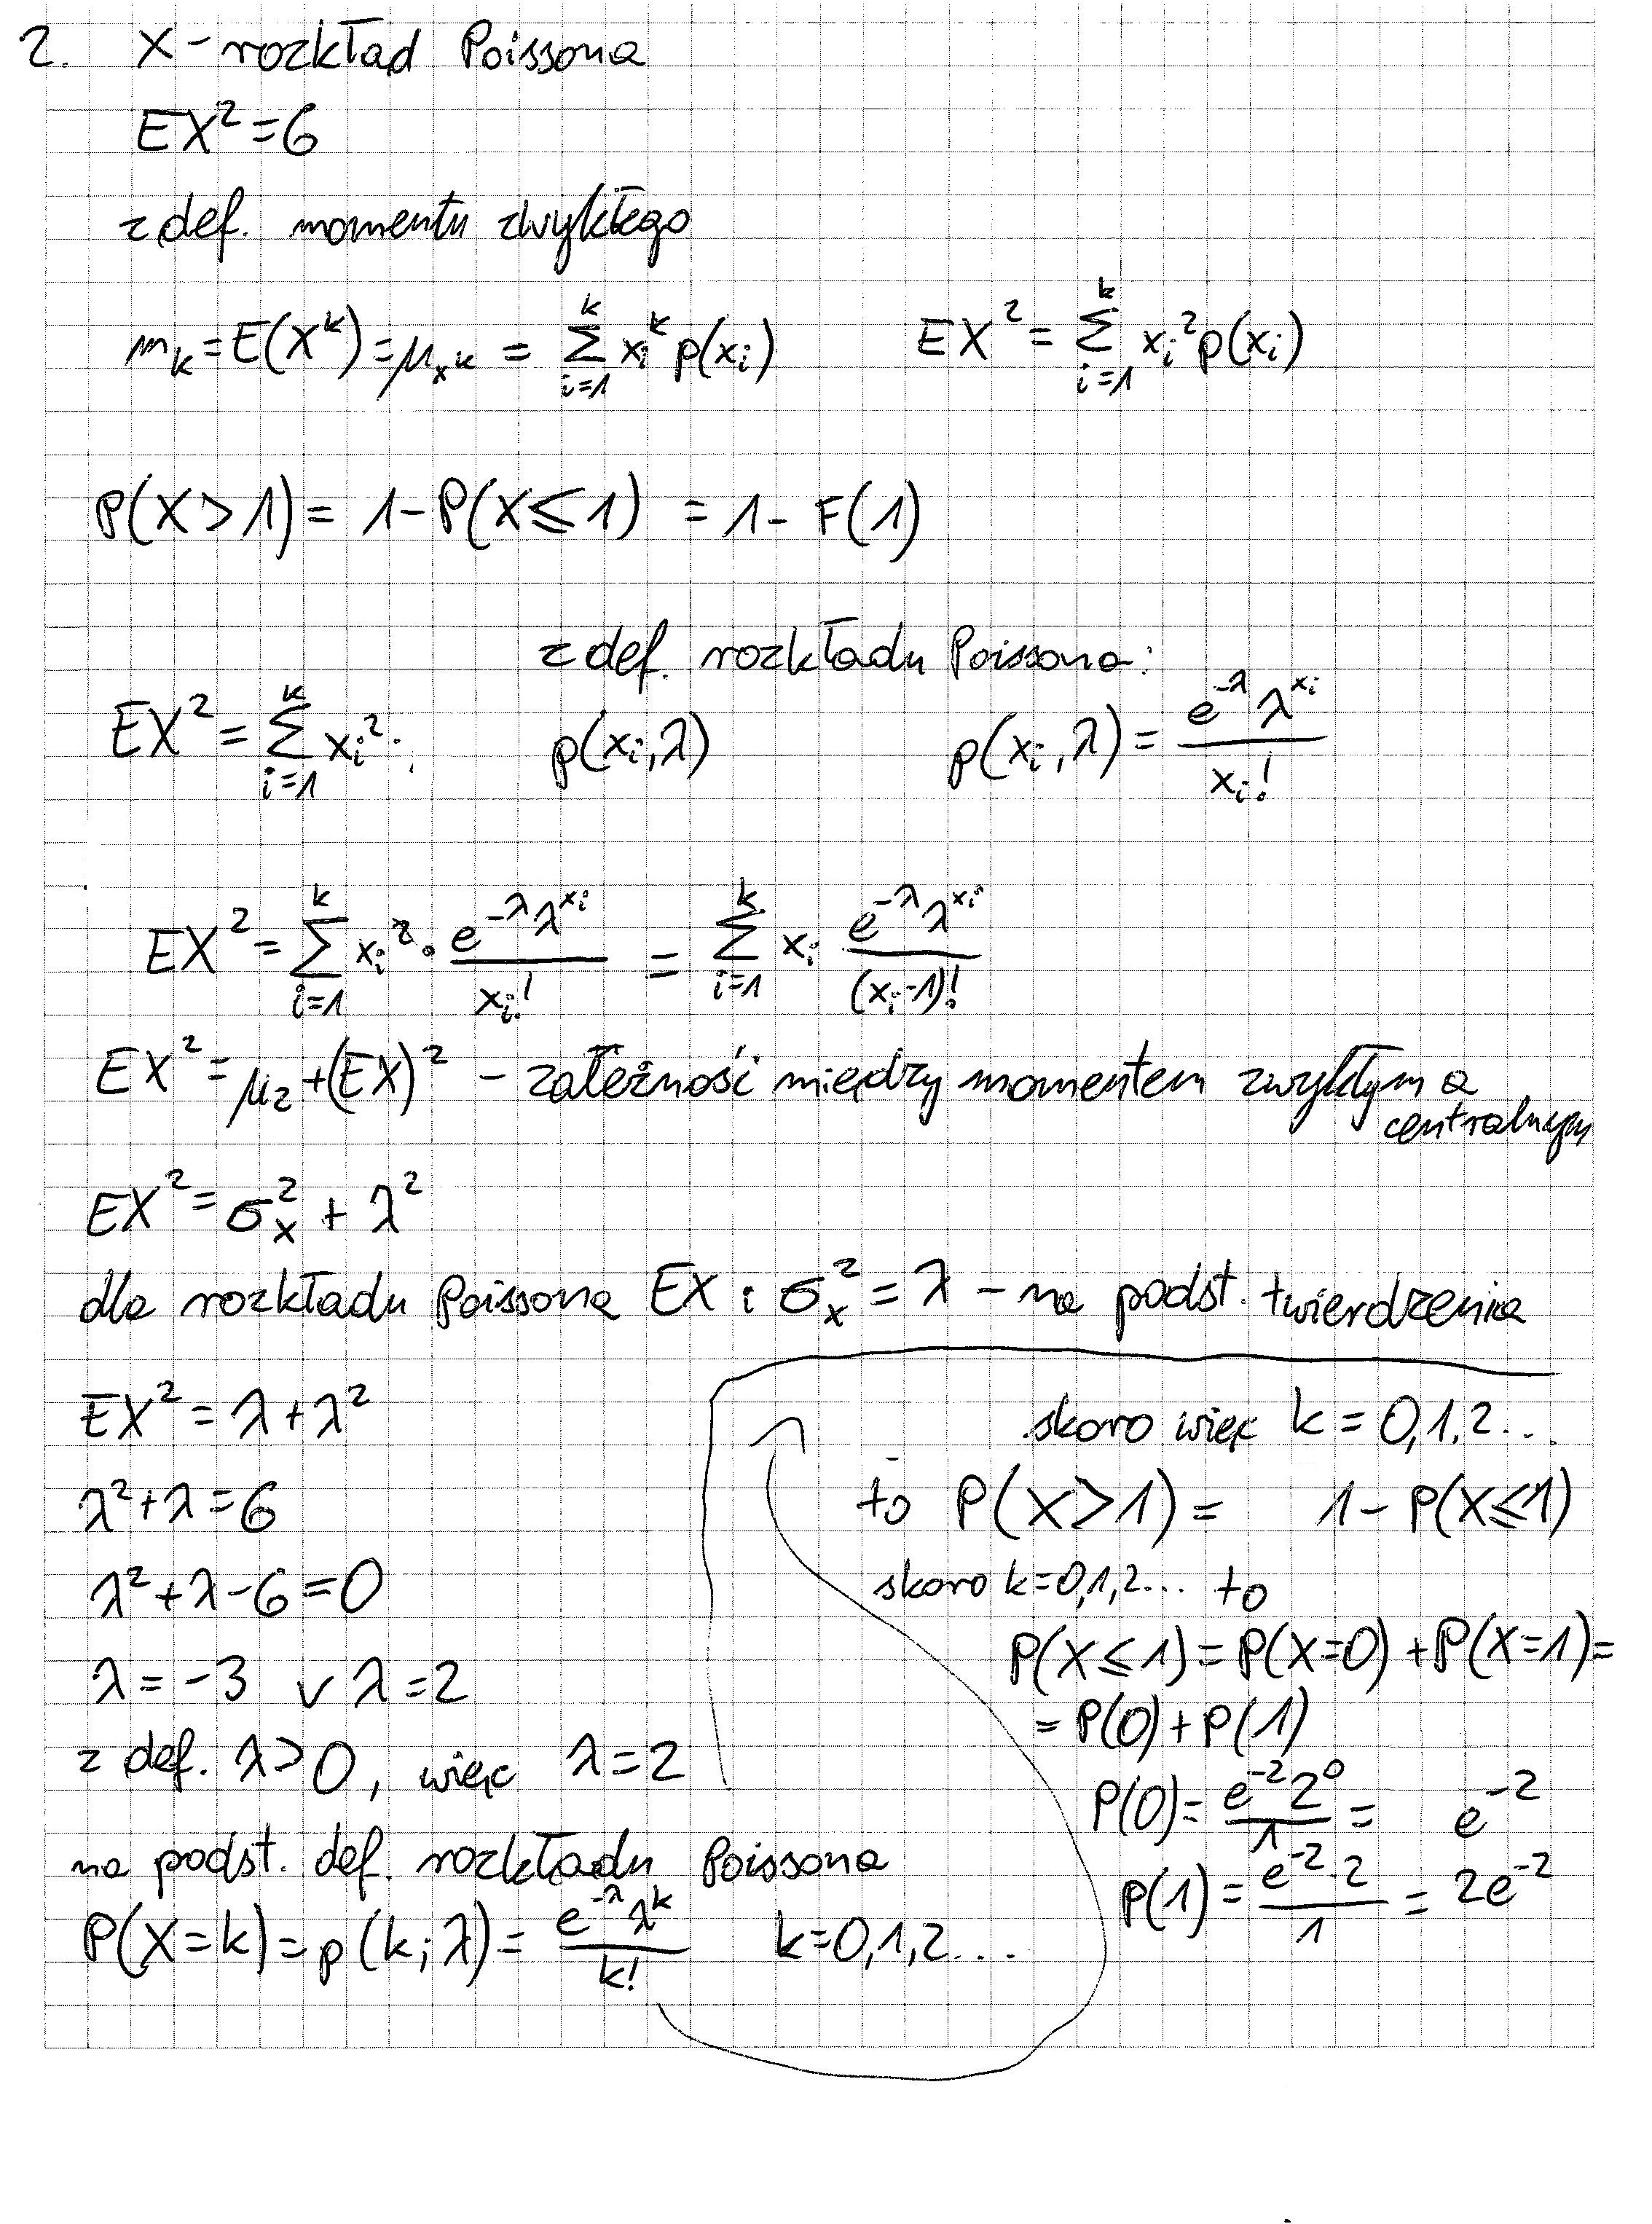 2. X - rozkład Poissona
EX² = 6
z def. momentu zwykłego
m_k = E(X^k) = μ_{x^k} = Σ_{i=1}^{k} x_i^k p(x_i)    EX² = Σ_{i=1}^{k} x_i² p(x_i)
P(X > 1) = 1 - P(X ≤ 1) = 1 - F(1)
z def. rozkładu Poissona:
EX² = Σ_{i=1}^{k} x_i² ·    p(x_i, λ)    p(x_i, λ) = e^{-λ} λ^{x_i} / x_i!
EX² = Σ_{i=1}^{k} x_i² · e^{-λ} λ^{x_i} / x_i! = Σ_{i=1}^{k} x_i e^{-λ} λ^{x_i} / (x_i - 1)!
EX² = μ_2 + (EX)² - zależność między momentem zwykłym a
centralnym
EX² = σ_x² + λ²
dla rozkładu Poissona EX i σ_x² = λ - na podst. twierdzenia
EX² = λ + λ²
λ² + λ = 6
λ² + λ - 6 = 0
λ = -3 ∨ λ = 2
z def. λ > 0, więc λ = 2
na podst. def. rozkładu Poissona
P(X = k) = p(k; λ) = e^{-λ} λ^k / k!    k = 0, 1, 2 ...
skoro więc k = 0, 1, 2 ...
to P(X > 1) = 1 - P(X ≤ 1)
skoro k = 0, 1, 2 ... to
P(X ≤ 1) = P(X = 0) + P(X = 1) =
= P(0) + P(1)
P(0) = e^{-2} 2^0 / 1 = e^{-2}
P(1) = e^{-2} · 2 / 1 = 2e^{-2}